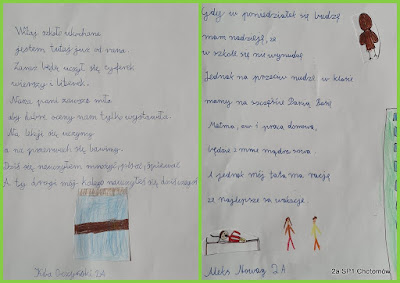 Witaj szkoło kochana
jestem tutaj już od rana.
Zaraz będę uczył się cyferek
wierszy i literek.
Nasza pani zawsze miła
do które oceny nam tylko wystawiła.
Na lekcji się uczymy
a na przerwach się bawimy.
Dziś się nauczyłem mnożyć, pisać, śpiewać
A ty drogi mój kolego nauczyłeś się dziś czegoś
Gdy w poniedziałek się budzę
mam nadzieję, że
w szkole się nie wynudzę
Jednak na przeciw nudzie w klasie
mamy na szczęście Panią Basię
Matma, w-f i praca domowa,
będzie z mnie mądra sowa.
A jednak mój tata ma rację
że najlepsze są wakacje.
2A
Maks Nowag 2A
2a SP1 Chotomów